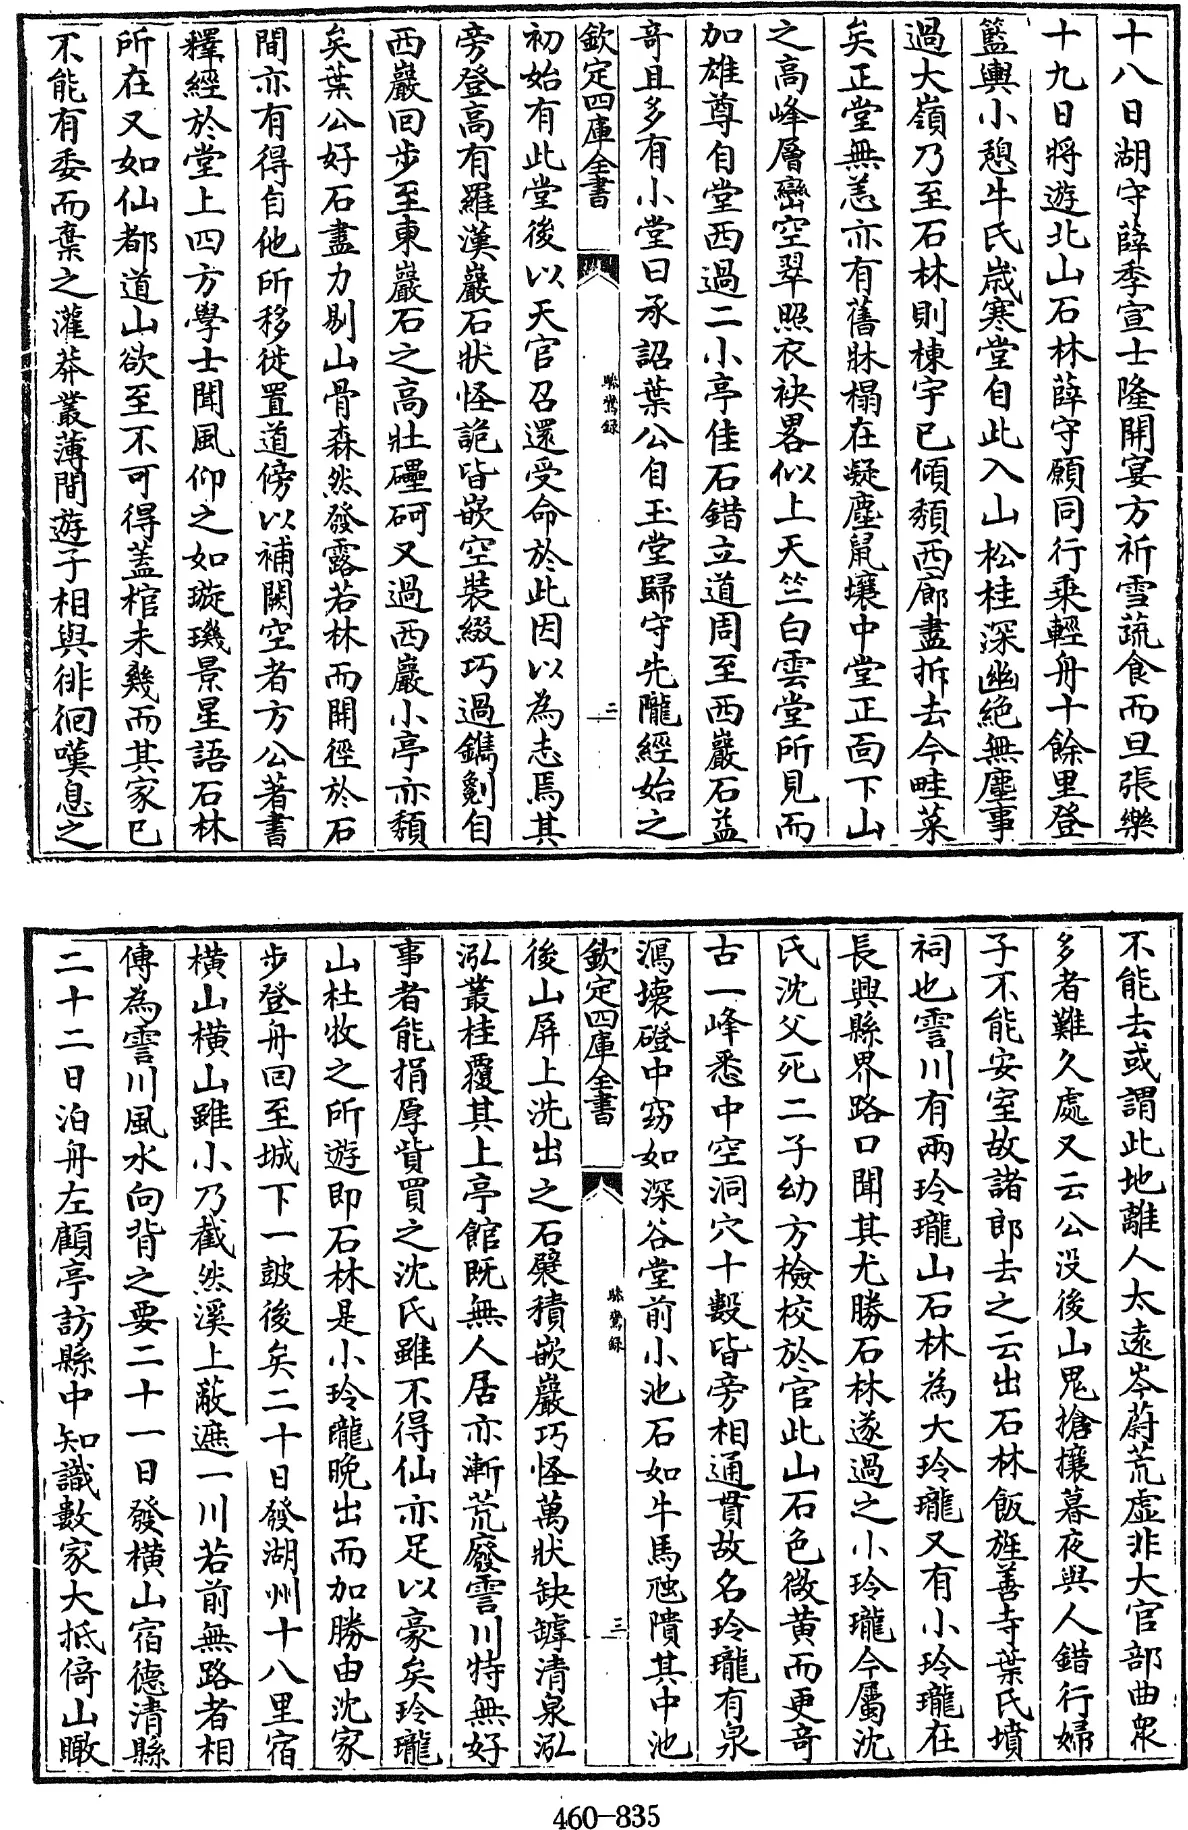 十八日湖守薛季宣士隆開宴方祈雪蔬食而且張樂
十九日將遊北山石林薛守願同行乗輕舟十餘里登
籃輿小憩牛氏歳寒堂自此入山松桂深幽絶無塵事
過大嶺乃至石林則棟宇已傾頽西廊盡拆去今畦菜
矣正堂無恙亦有舊牀榻在凝塵鼠壤中堂正面下山
之高峰層巒空翠照衣袂畧似上天竺白雲堂所見而
加雄尊自堂西過二小亭佳石錯立道周至西巖石益
竒且多有小堂曰承詔葉公自玉堂歸守先隴經始之
欽定四庫全書
驂鸞録
二
初始有此堂後以天官召還受命於此因以為志焉其
旁登高有羅漢巖石狀怪詭皆嵌空裝綴巧過鐫劖自
西巖回步至東巖石之高壯礧砢又過西巖小亭亦頽
矣葉公好石盡力剔山骨森然發露若林而開徑於石
間亦有得自他所移徙置道傍以補闕空者方公著書
釋經於堂上四方學士聞風仰之如璇璣景星語石林
所在又如仙都道山欲至不可得蓋棺未幾而其家已
不能有委而棄之灌莽叢薄間遊子相與徘徊嘆息之
不能去或謂此地離人太遠岑蔚荒虚非大官部曲衆
多者難久處又云公没後山鬼搶攘暮夜與人錯行婦
子不能安室故諸郎去之云出石林飯旌善寺葉氏墳
祠也霅川有兩玲瓏山石林為大玲瓏又有小玲瓏在
長興縣界路口聞其尤勝石林遂過之小玲瓏今屬沈
氏沈父死二子幼方檢校於官此山石色微黄而更竒
古一峰悉中空洞穴十數皆旁相通貫故名玲瓏有泉
瀉壊磴中窈如深谷堂前小池石如牛馬虺隤其中池
欽定四庫全書
驂鸞録
三
後山屏上洗出之石襞積嵌巖巧怪萬狀缺罅清泉泓
泓叢桂覆其上亭館既無人居亦漸荒廢霅川特無好
事者能捐厚貲買之沈氏雖不得仙亦足以豪矣玲瓏
山杜牧之所遊即石林是小玲瓏晚出而加勝由沈家
步登舟囘至城下一鼓後矣二十日發湖州十八里宿
横山横山雖小乃截然溪上蔽遮一川若前無路者相
傳為霅川風水向背之要二十一日發横山宿德清縣
二十二日泊舟左顧亭訪縣中知識數家大抵倚山瞰
460-835